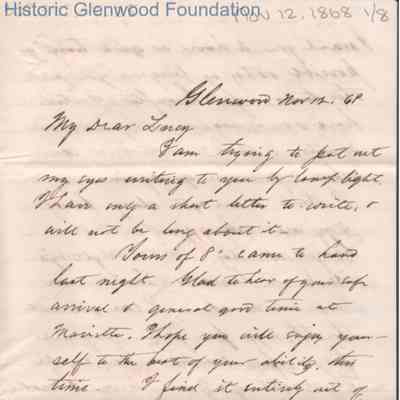 Historic Glenwood Foundation
NOV 12, 1868 1/8
Glenwood Nov 12. 68
My Dear Lucy
I am trying to put out
my eyes writing to you by lamp light.
I have only a short letter to write, &
will not be long about it -
Yours of 8' came to hand
last night. Glad to hear of your safe
arrival & general good time at
I hope you will enjoy your-
self to the best of your ability, this
time. I find it entirely out of